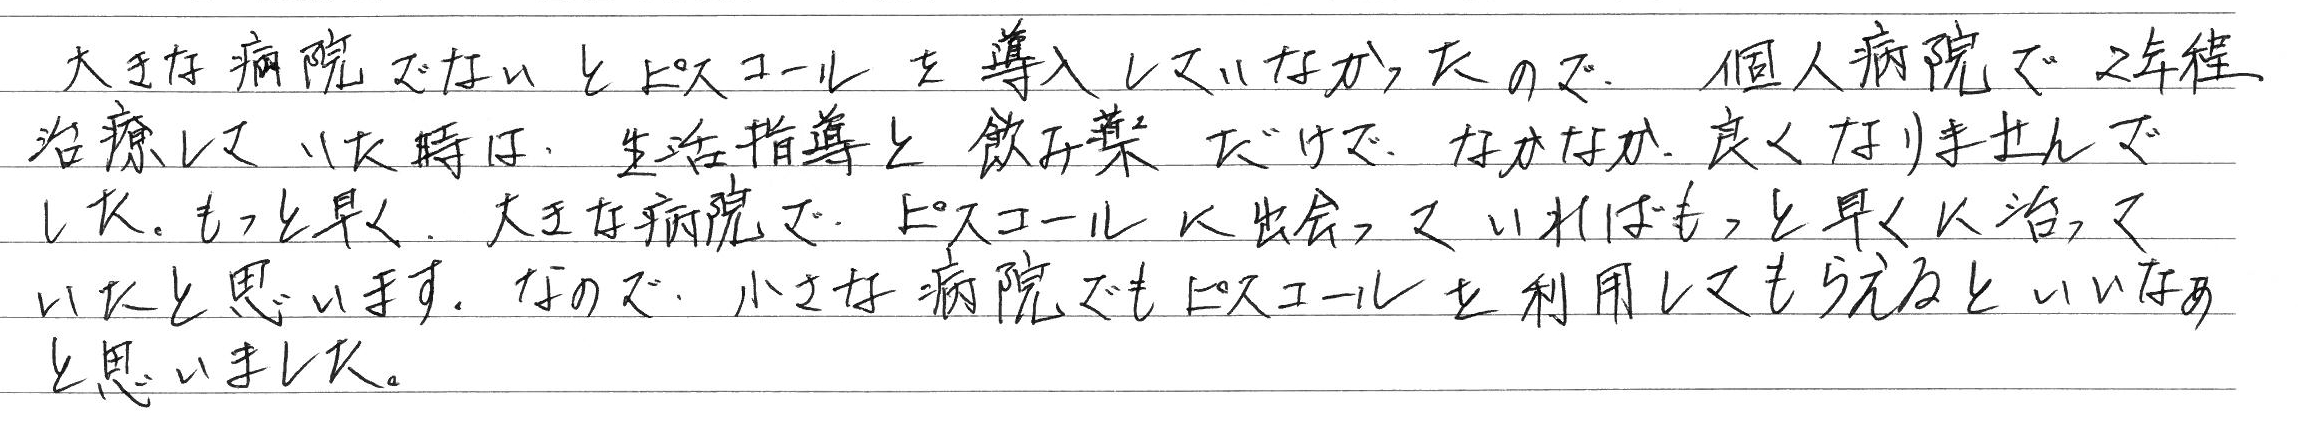 大きな病院でないとピスコールを導入していなかったので、個人病院で2年程
治療していた時は、生活指導と飲み薬だけで、なかなか、良くなりませんで
した。もっと早く、大きな病院で、ピスコールに出会っていればもっと早くに治って
いたと思います。なので、小さな病院でもピスコールを利用してもらえるといいなぁ
と思いました。